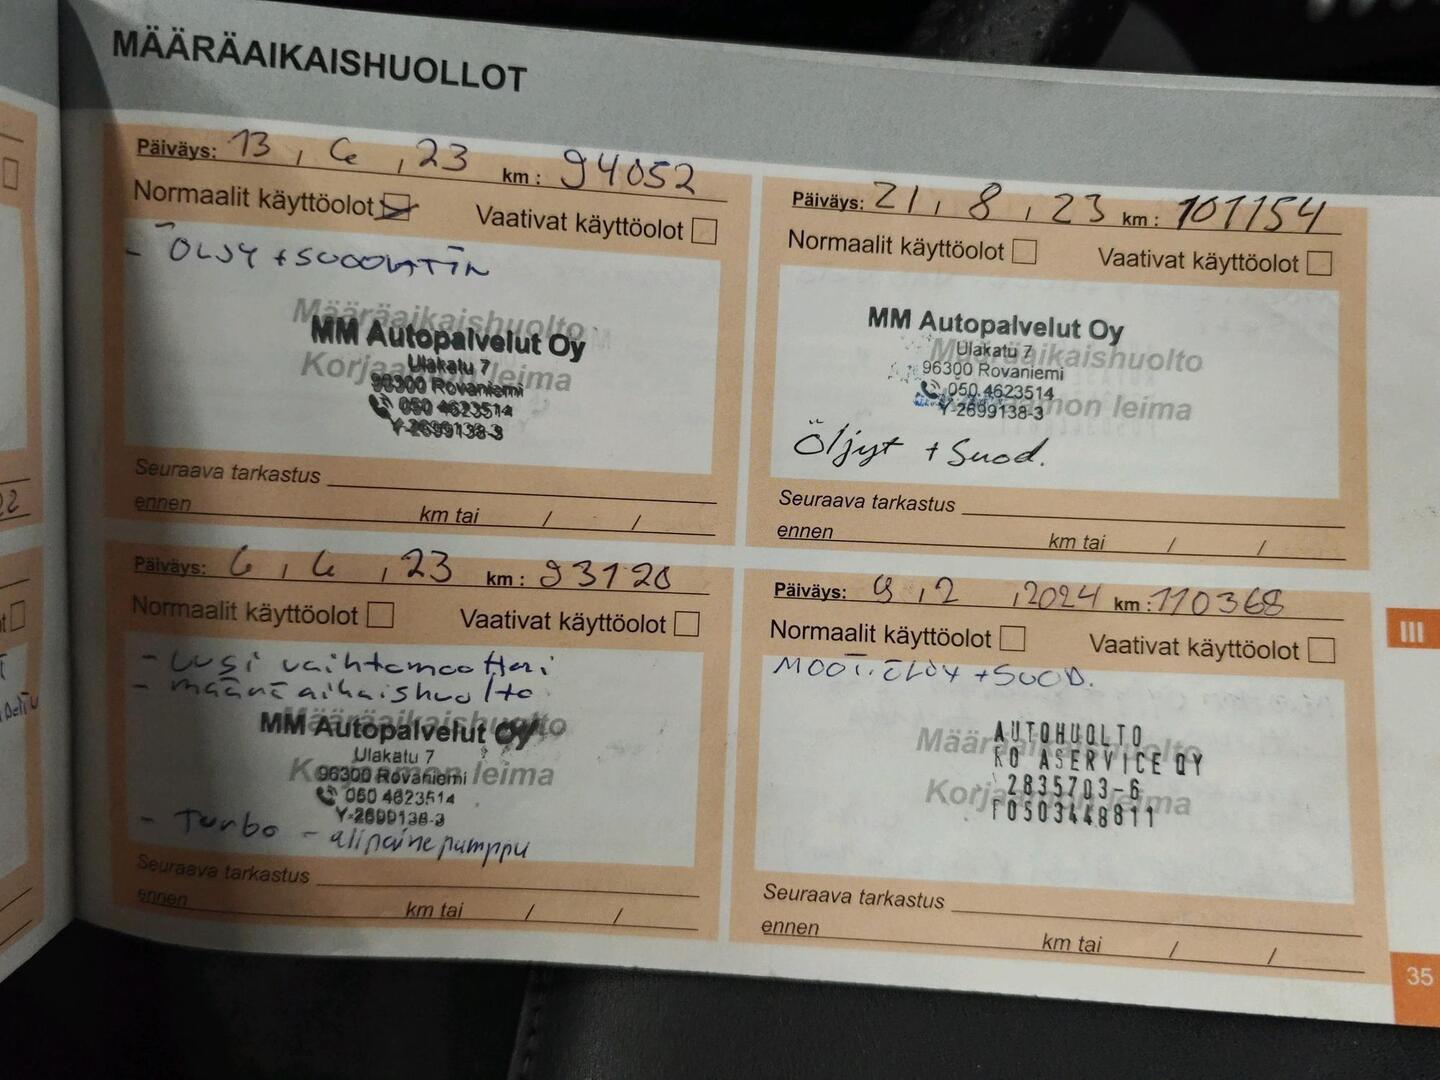 MÄÄRÄAIKAISHUOLLOT
Päiväys: 13 , 6 , 23 km : 94052
Normaalit käyttöolot Vaativat käyttöolot
- ÖLJY + SUODATTIN
Määräaikaishuolto
MM Autopalvelut Oy
Ulakatu 7
Korjaamon leima
96300 Rovaniemi
050 4623514
Y-2699138-3
Seuraava tarkastus
ennen km tai / /
Päiväys: 21 , 8 , 23 km : 101154
Normaalit käyttöolot Vaativat käyttöolot
MM Autopalvelut Oy
Ulakatu 7
Määräaikaishuolto
96300 Rovaniemi
050 4623514
Korjaamon leima
Y-2699138-3
Öljyt + Suod.
Seuraava tarkastus
ennen km tai / /
Päiväys: 6 , 6 , 23 km : 93120
Normaalit käyttöolot Vaativat käyttöolot
- Uusi vaihtomoottori
- määräaikaishuolto
Määräaikaishuolto
MM Autopalvelut Oy
Ulakatu 7
Korjaamon leima
96300 Rovaniemi
050 4623514
Y-2699138-3
- Turbo - alipainepumppu
Seuraava tarkastus
ennen km tai / /
Päiväys: 9 , 2 , 2024 km : 110368
Normaalit käyttöolot Vaativat käyttöolot
MOOT.ÖLJY + SUOD.
AUTOHUOLTO
Määräaikaishuolto
RO ASERVICE OY
2835703-6
Korjaamon leima
F0503448811
Seuraava tarkastus
ennen km tai / /
III
35